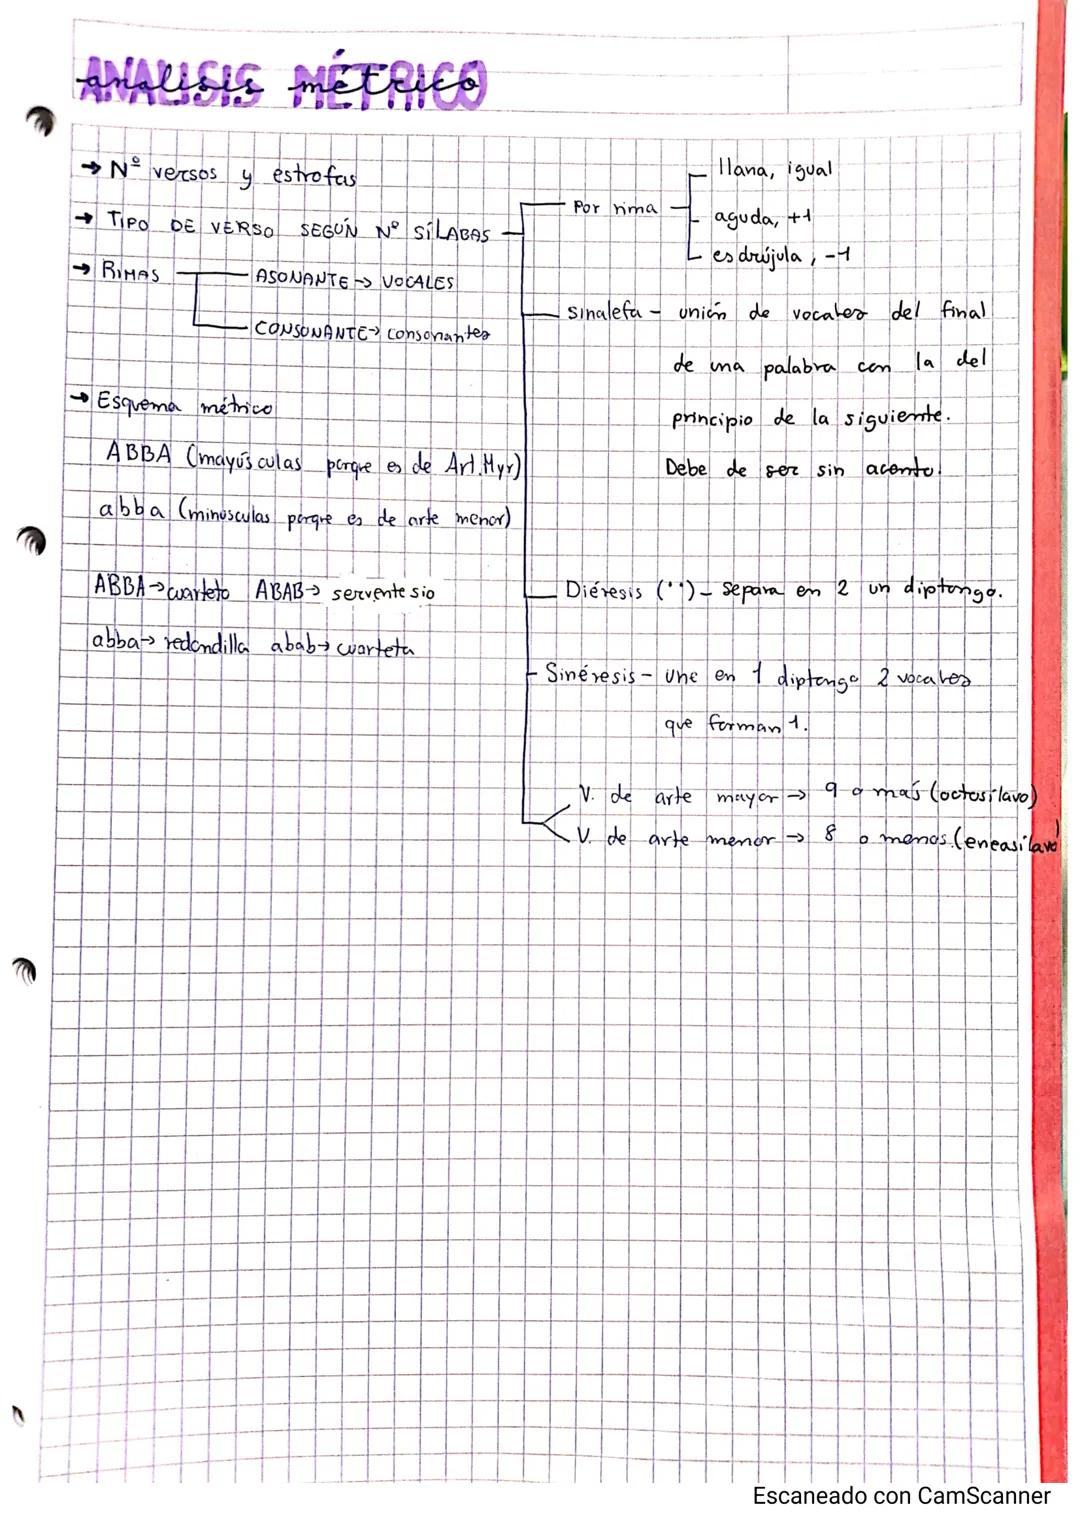 ANALISIS MÉTRICO
analisis métrico
→ Nº versos y estrofas
→ TIPO DE VERSO SEGÚN Nº SÍLABAS
Por rima
llana, igual
aguda, +1
esdrújula, -1
→ RIMAS
ASONANTE → VOCALES
CONSONANTE → consonantes
sinalefa - unión de vocales del final
de una palabra con la del
principio de la siguiente.
Debe de ser sin acento.
→ Esquema métrico
ABBA (mayúsculas porque es de Art.Myr)
abba (minúsculas porque es de arte menor)
ABBA → cuarteto ABAB → serventesio
abba → redondilla abab → cuarteta
Diéresis (¨) - separa en 2 un diptongo.
Sinéresis - une en 1 diptongo 2 vocales
que forman 1.
V. de arte mayor → 9 o más (octosílavo)
V. de arte menor → 8 o menos.(eneasílavo)
Escaneado con CamScanner